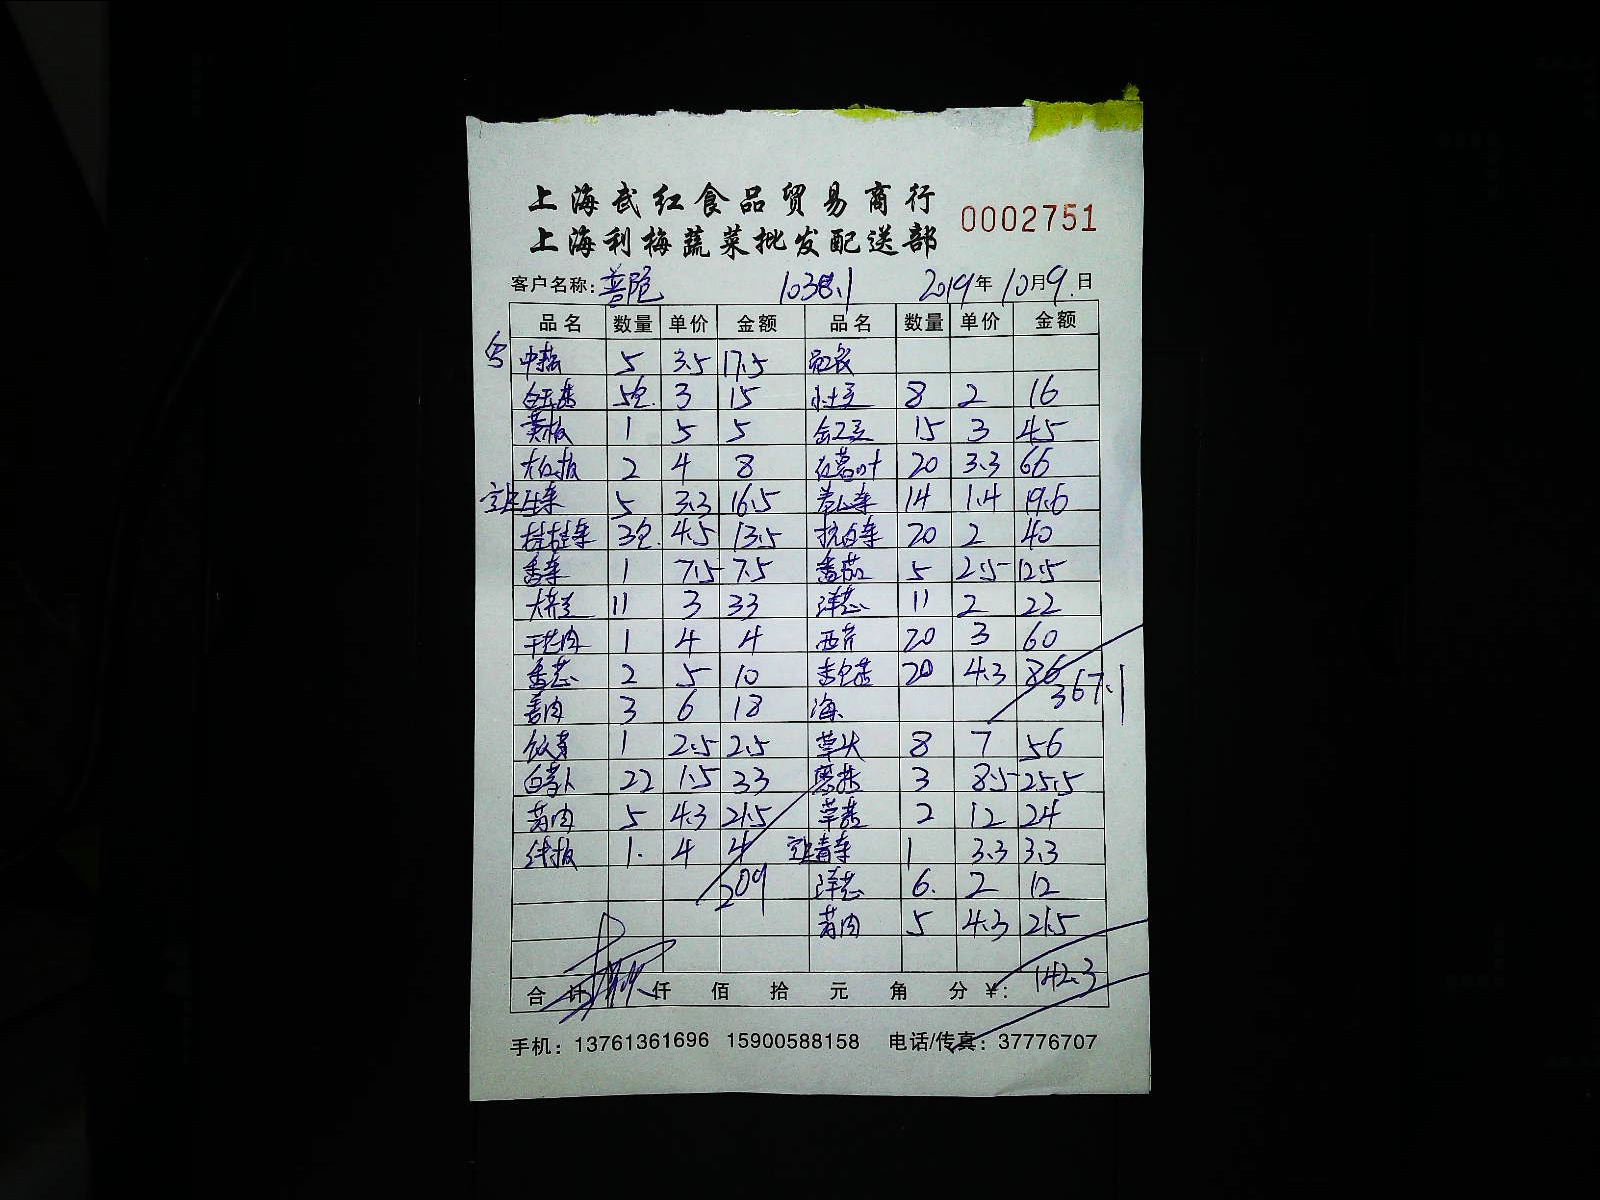 上海武红食品贸易商行
上海利梅蔬菜批发配送部 0002751
客户名称: 1038.1 2019年10月9日
品名 数量 单价 金额 品名 数量 单价 金额
5 3.5 17.5
5包 3 15 小土豆 8 2 16
黄板 1 5 5 15 3 45
大红板 2 4 8 红薯叶 20 3.3 66
生菜 5 3.3 16.5 卷心菜 14 1.4 19.6
娃娃菜 3包 4.5 13.5 杭白菜 20 2 40
香菜 1 7.5 7.5 番茄 5 2.5 12.5
11 3 33 洋葱 11 2 22
1 4 4 西芹 20 3 60
香葱 2 5 10 20 4.3 86
367.1
姜肉 3 6 18 海
1 2.5 2.5 草头 8 7 56
白萝卜 22 1.5 33 3 8.5 25.5
5 4.3 21.5 草菇 2 12 24
线板 1 4 4 青菜 1 3.3 3.3
209 洋葱 6 2 12
5 4.3 21.5
142.3
合计 仟 佰 拾 元 角 分 ¥:
手机: 13761361696 15900588158 电话/传真: 37776707